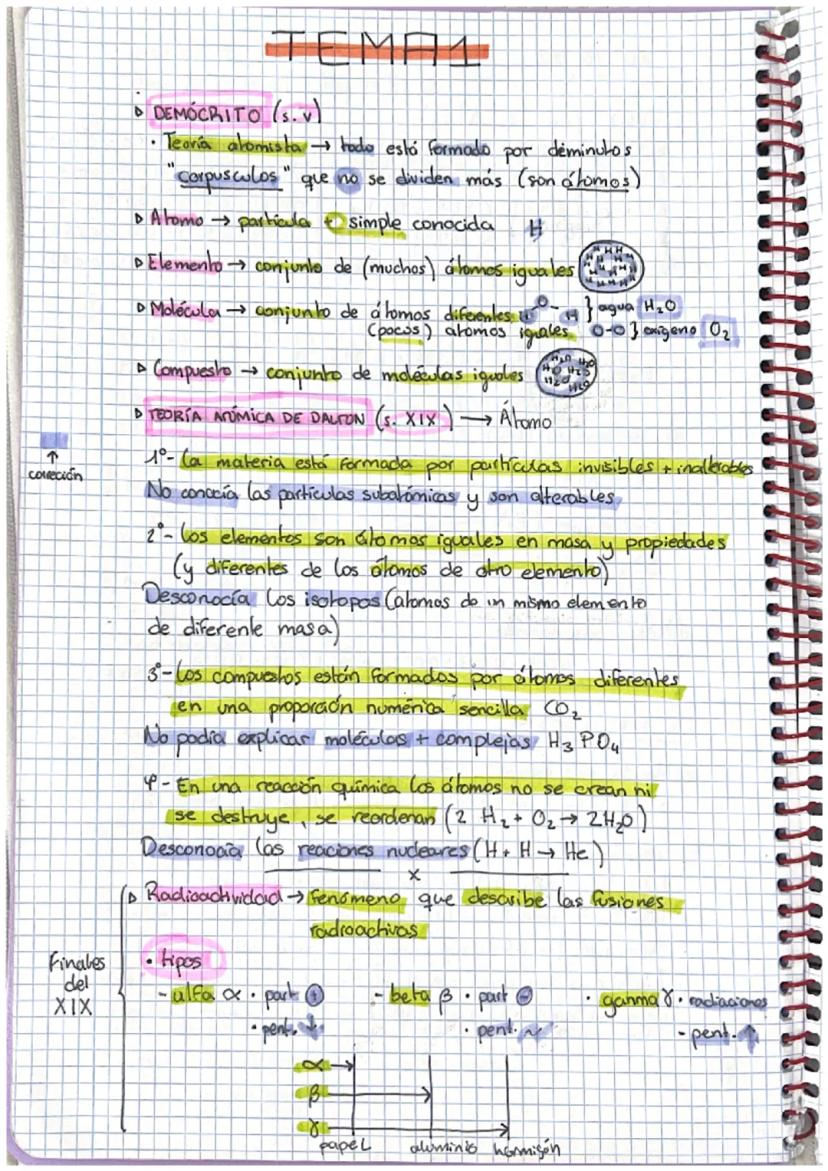 TEMA 1
DEMÓCRITO (s. V)
· Teoría atomista → todo está formado por déminutos
"corpusculos" que no se dividen más (son átomos)
Atomo → partícula + simple conocida H
Elemento → conjunto de (muchos) átomos iguales
Molécula → conjunto de átomos diferentes } agua H₂O
(pocos) atomos iguales O-O } oxígeno O₂
Compuesto → conjunto de moléculas iguales
TEORÍA ATÓMICA DE DALTON (s. XIX) → Átomo
↑
corrección
1º- La materia está formada por partículas invisibles + inalterables
No conocía las partículas subatómicas y son alterables
2º- Los elementos son átomos iguales en masa y propiedades
(y diferentes de los átomos de otro elemento)
Desconocía los isotopos (átomos de un mismo elemento
de diferente masa)
3º- Los compuestos están formados por átomos diferentes
en una proporción numérica sencilla CO₂
No podía explicar moléculas + complejas H₃PO₄
4º- En una reacción química los átomos no se crean ni
se destruye, se reordenan (2 H₂ + O₂ → 2H₂O)
Desconocía las reaciones nucleares (H + H → He)
x
Radioactividad → fenómeno que describe las fusiones
radroactivas
Finales
del
XIX
· tipos
- alfa α · part ⊕ - beta β · part ⊖ · gamma γ · radiaciones
· pent. ↓ · pent. ~ - pent. ↑
α →
β
γ
papel aluminio hormigón